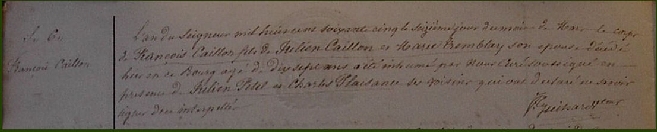 Le 6
François Caillon
L'an du Seigneur mil huit cent soixante cinq le sixième jour du mois de Mars le corps
de François Caillon fils de Julien Caillon et Marie Tremblay son épouse décédé
hier en ce Bourg agé de Dix sept ans a été inhumé par Nous Curé soussigné en
présence de Julien Petit et Charles Plaisance ses voisins qui ont déclaré ne savoir
signer de ce interpellés